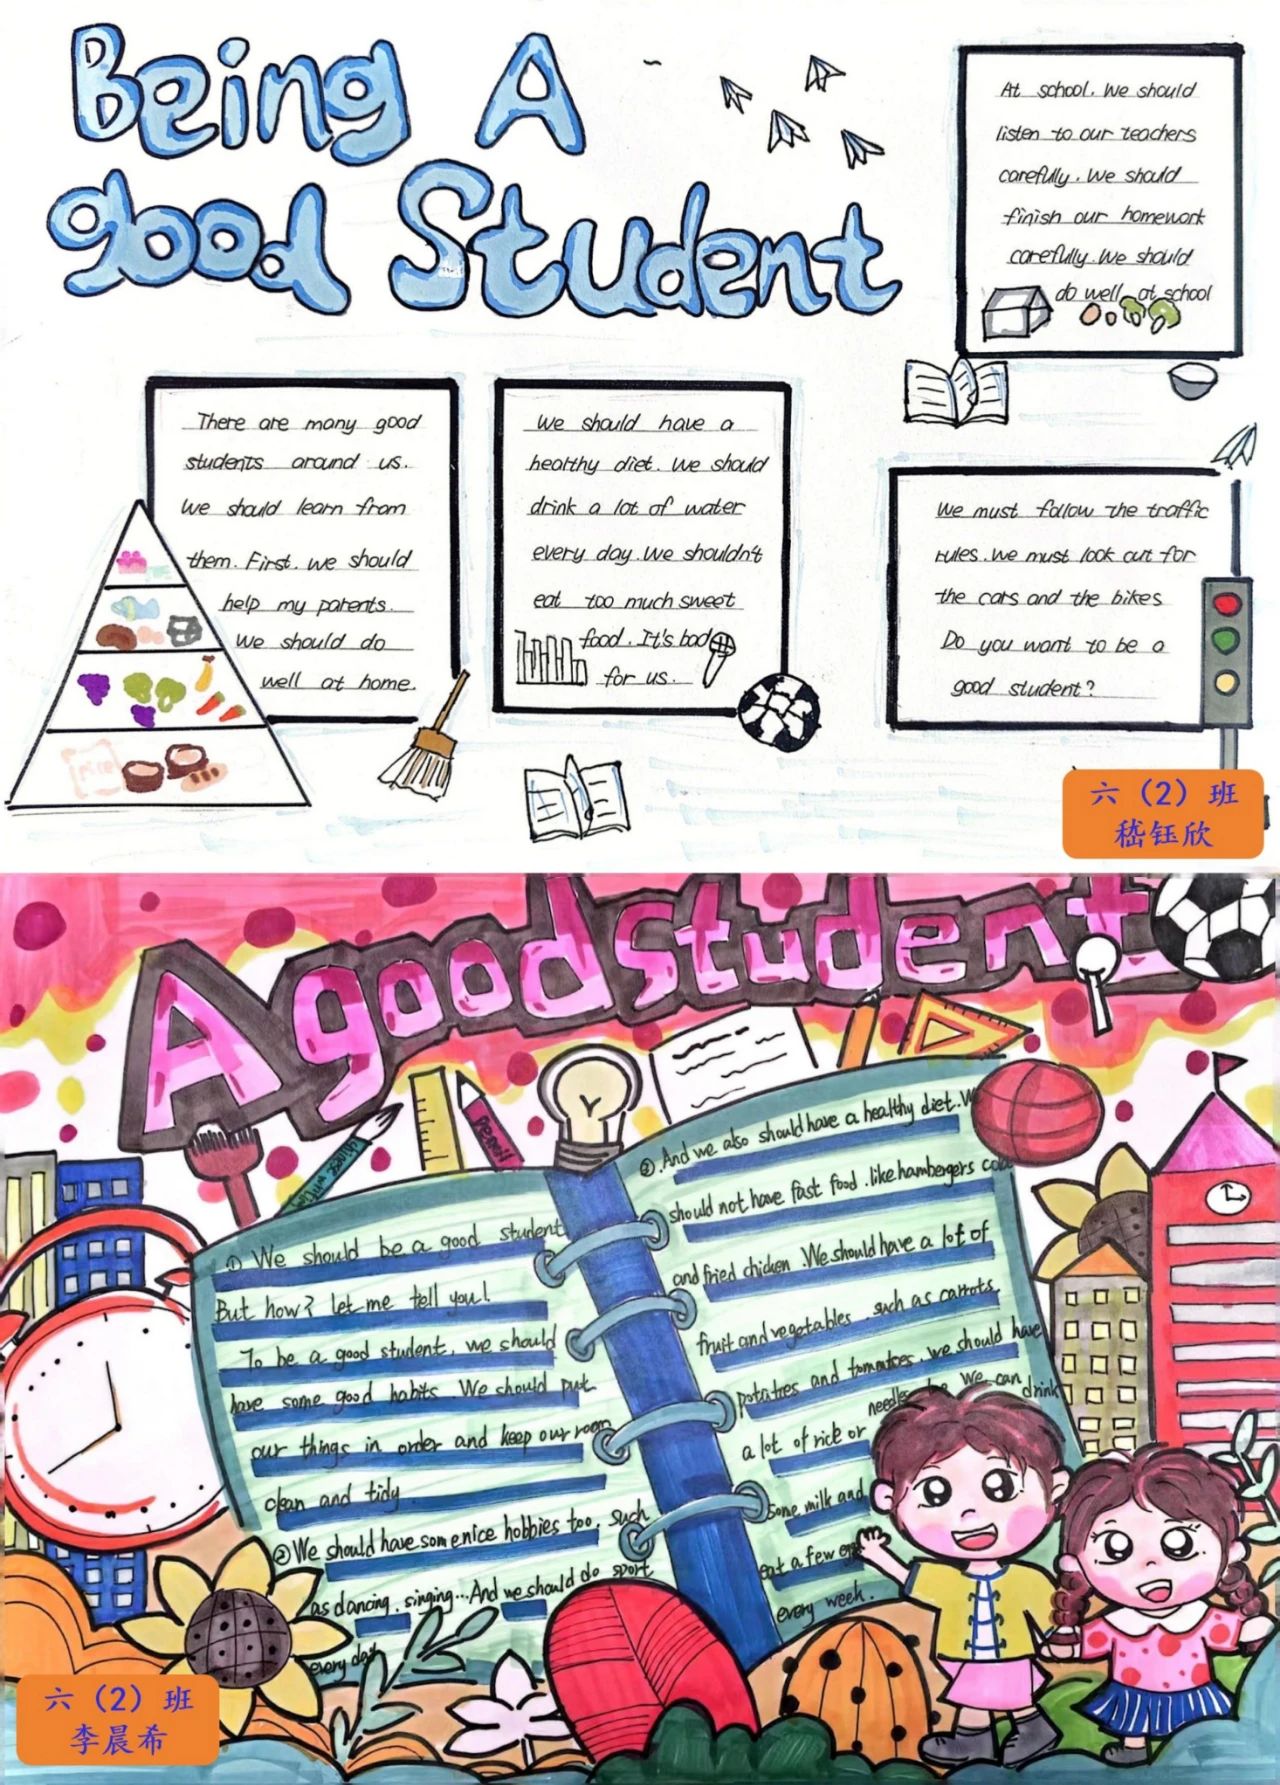 Being A
good Student
At school. We should
listen to our teachers
carefully. We should
finish our homework
carefully. We should
do well at school
There are many good
students around us.
We should learn from
them. First. we should
help my parents.
We should do
well at home.
We should have a
healthy diet. We should
drink a lot of water
every day. We shouldn't
eat too much sweet
food. It's bad
for us.
We must follow the traffic
rules. We must look out for
the cars and the bikes
Do you want to be a
good student?
rice
六（2）班
嵇钰欣
A good student
pencil
① We should be a good student
But how? let me tell you!
To be a good student, we should
have some good habits. We should put
our things in order and keep our room
clean and tidy
② We should have some nice hobbies too, such
as dancing, singing...And we should do sport
every day
③ .And we also should have a healthy diet. W
should not have fast food .like hambergers cola
and fried chicken .We should have a lot of
fruit and vegetables . such as carrots,
potatoes and tomatoes. we should have
a lot of rice or
We can drink
some milk and
eat a few
every week.
六（2）班
李晨希